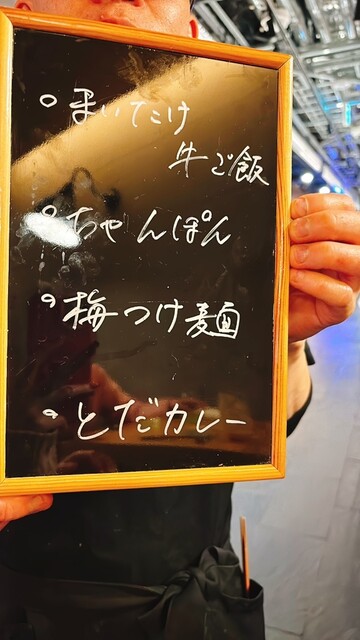 ○ まいたけ
牛ご飯
○ ちゃんぽん
○ 梅つけ麺
○ とだカレー